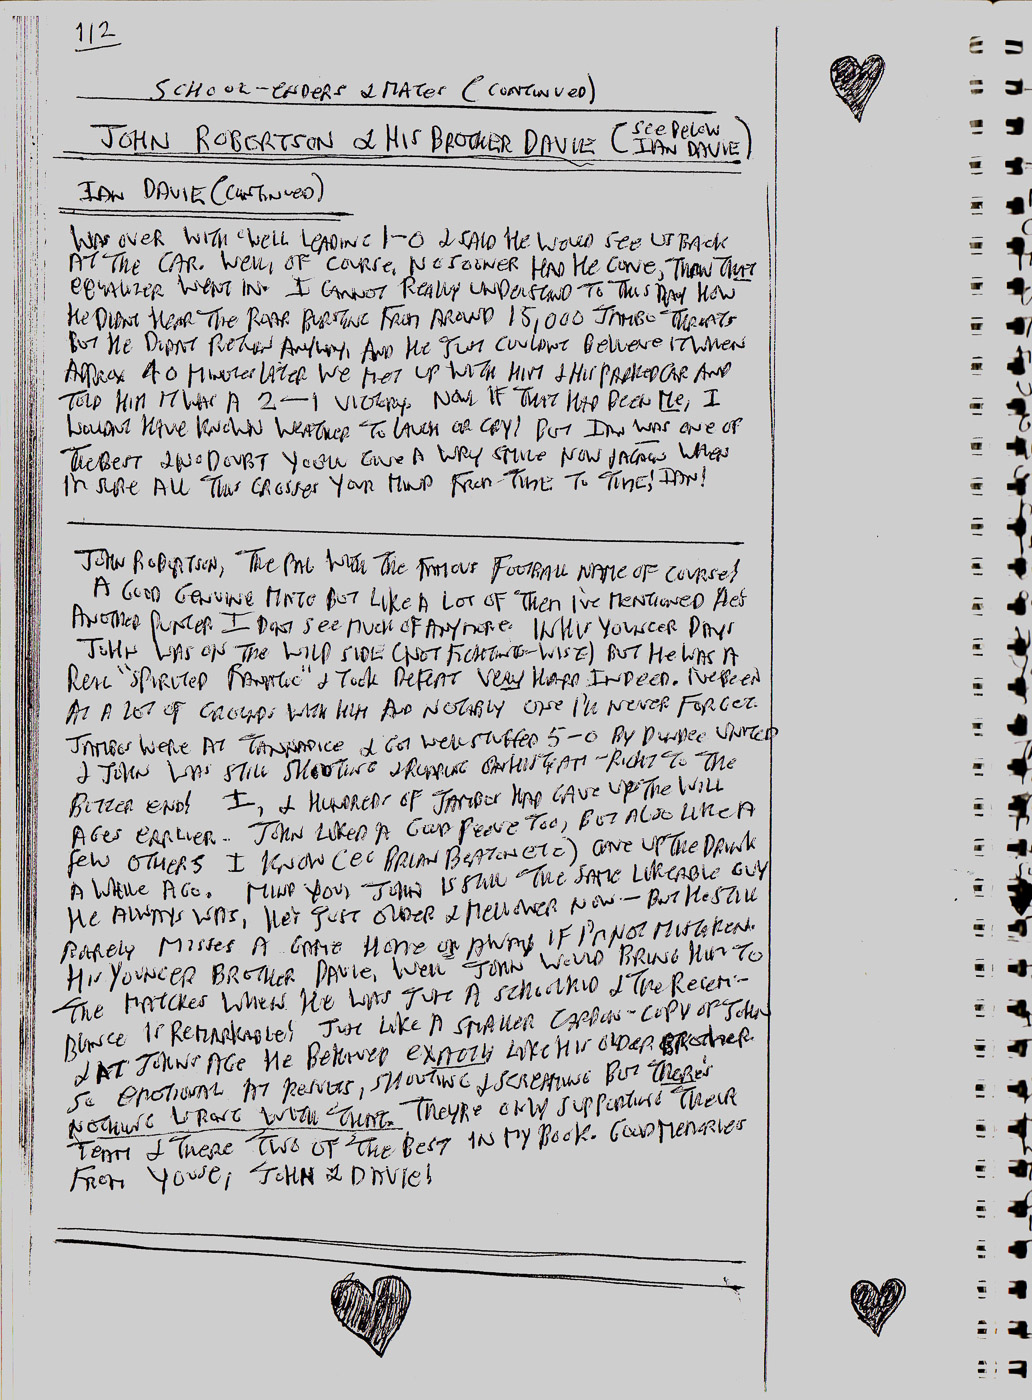 112
SCHOOL-ENDERS & MATES (CONTINUED)
JOHN ROBERTSON & HIS BROTHER DAVIE (SEE BELOW IAN DAVIE)
IAN DAVIE (CONTINUED)
WAS OVER WITH "WELL LEADING 1-0 & SAID HE WOULD SEE US BACK
AT THE CAR. WELL, OF COURSE, NO SOONER HAD HE GONE, THAN THAT
EQUALIZER WENT IN. I CANNOT REALLY UNDERSTAND TO THIS DAY HOW
HE DIDNT HEAR THE ROAR BURSTING FROM AROUND 15,000 JAMBO THROATS
BUT HE DIDNT RETURN ANYWAY, AND HE JUST COULDNT BELIEVE IT WHEN
APPROX 40 MINUTES LATER WE MET UP WITH HIM & HIS PARKED CAR AND
TOLD HIM IT WAS A 2-1 VICTORY. NOW IF THAT HAD BEEN ME, I
WOULDNT HAVE KNOWN WEATHER TO LAUGH OR CRY! BUT IAN WAS ONE OF
THE BEST & NO DOUBT YOU'LL GIVE A WRY SMILE NOW & AGAIN WHEN
I'M SURE ALL THIS CROSSES YOUR MIND FROM TIME TO TIME! IAN!
JOHN ROBERTSON, THE PAL WITH THE FAMOUS FOOTBALL NAME OF COURSE!
A GOOD GENUINE MATE BUT LIKE A LOT OF THEM I'VE MENTIONED HE'S
ANOTHER PUNTER I DONT SEE MUCH OF ANYMORE. IN HIS YOUNGER DAYS
JOHN WAS ON THE WILD SIDE (NOT FIGHTING-WISE) BUT HE WAS A
REAL "SPIRITED FANATIC" & TOOK DEFEAT VERY HARD INDEED. I'VE BEEN
AT A LOT OF GROUNDS WITH HIM AND NOTABLY ONE I'LL NEVER FORGET.
JAMBOS WERE AT TANNADICE & GOT WELL STUFFED 5-0 BY DUNDEE UNITED
& JOHN WAS STILL SHOUTING & ROARING ON HIS TEAM - RIGHT TO THE
BITTER END! I, & HUNDREDS OF JAMBOS HAD GAVE UP THE WILL
AGES EARLIER.. JOHN LIKED A GOOD BEVVE TOO, BUT ALSO LIKE A
FEW OTHERS I KNOW (EG BRIAN BEATON ETC) GAVE UP THE DRINK
A WHILE AGO. MIND YOU, JOHN IS STILL THE SAME LIKEABLE GUY
HE ALWAYS WAS, HE'S JUST OLDER & MELLOWER NOW - BUT HE STILL
RARELY MISSES A GAME HOME OR AWAY IF I'M NOT MISTAKEN.
HIS YOUNGER BROTHER DAVIE, WELL JOHN WOULD BRING HIM TO
THE MATCHES WHEN HE WAS JUST A SCHOOLKID & THE RESEM-
BLANCE IS REMARKABLE! JUST LIKE A SMALLER CARBON-COPY OF JOHN
& AT JOHNS AGE HE BEHAVED EXACTLY LIKE HIS OLDER BROTHER.
SO EMOTIONAL AT RESULTS, SHOUTING & SCREAMING BUT THERE'S
NOTHING WRONG WITH THAT. THEYRE ONLY SUPPORTING THEIR
TEAM & THERE TWO OF THE BEST IN MY BOOK. GOOD MEMORIES
FROM YOUSE, JOHN & DAVIE!